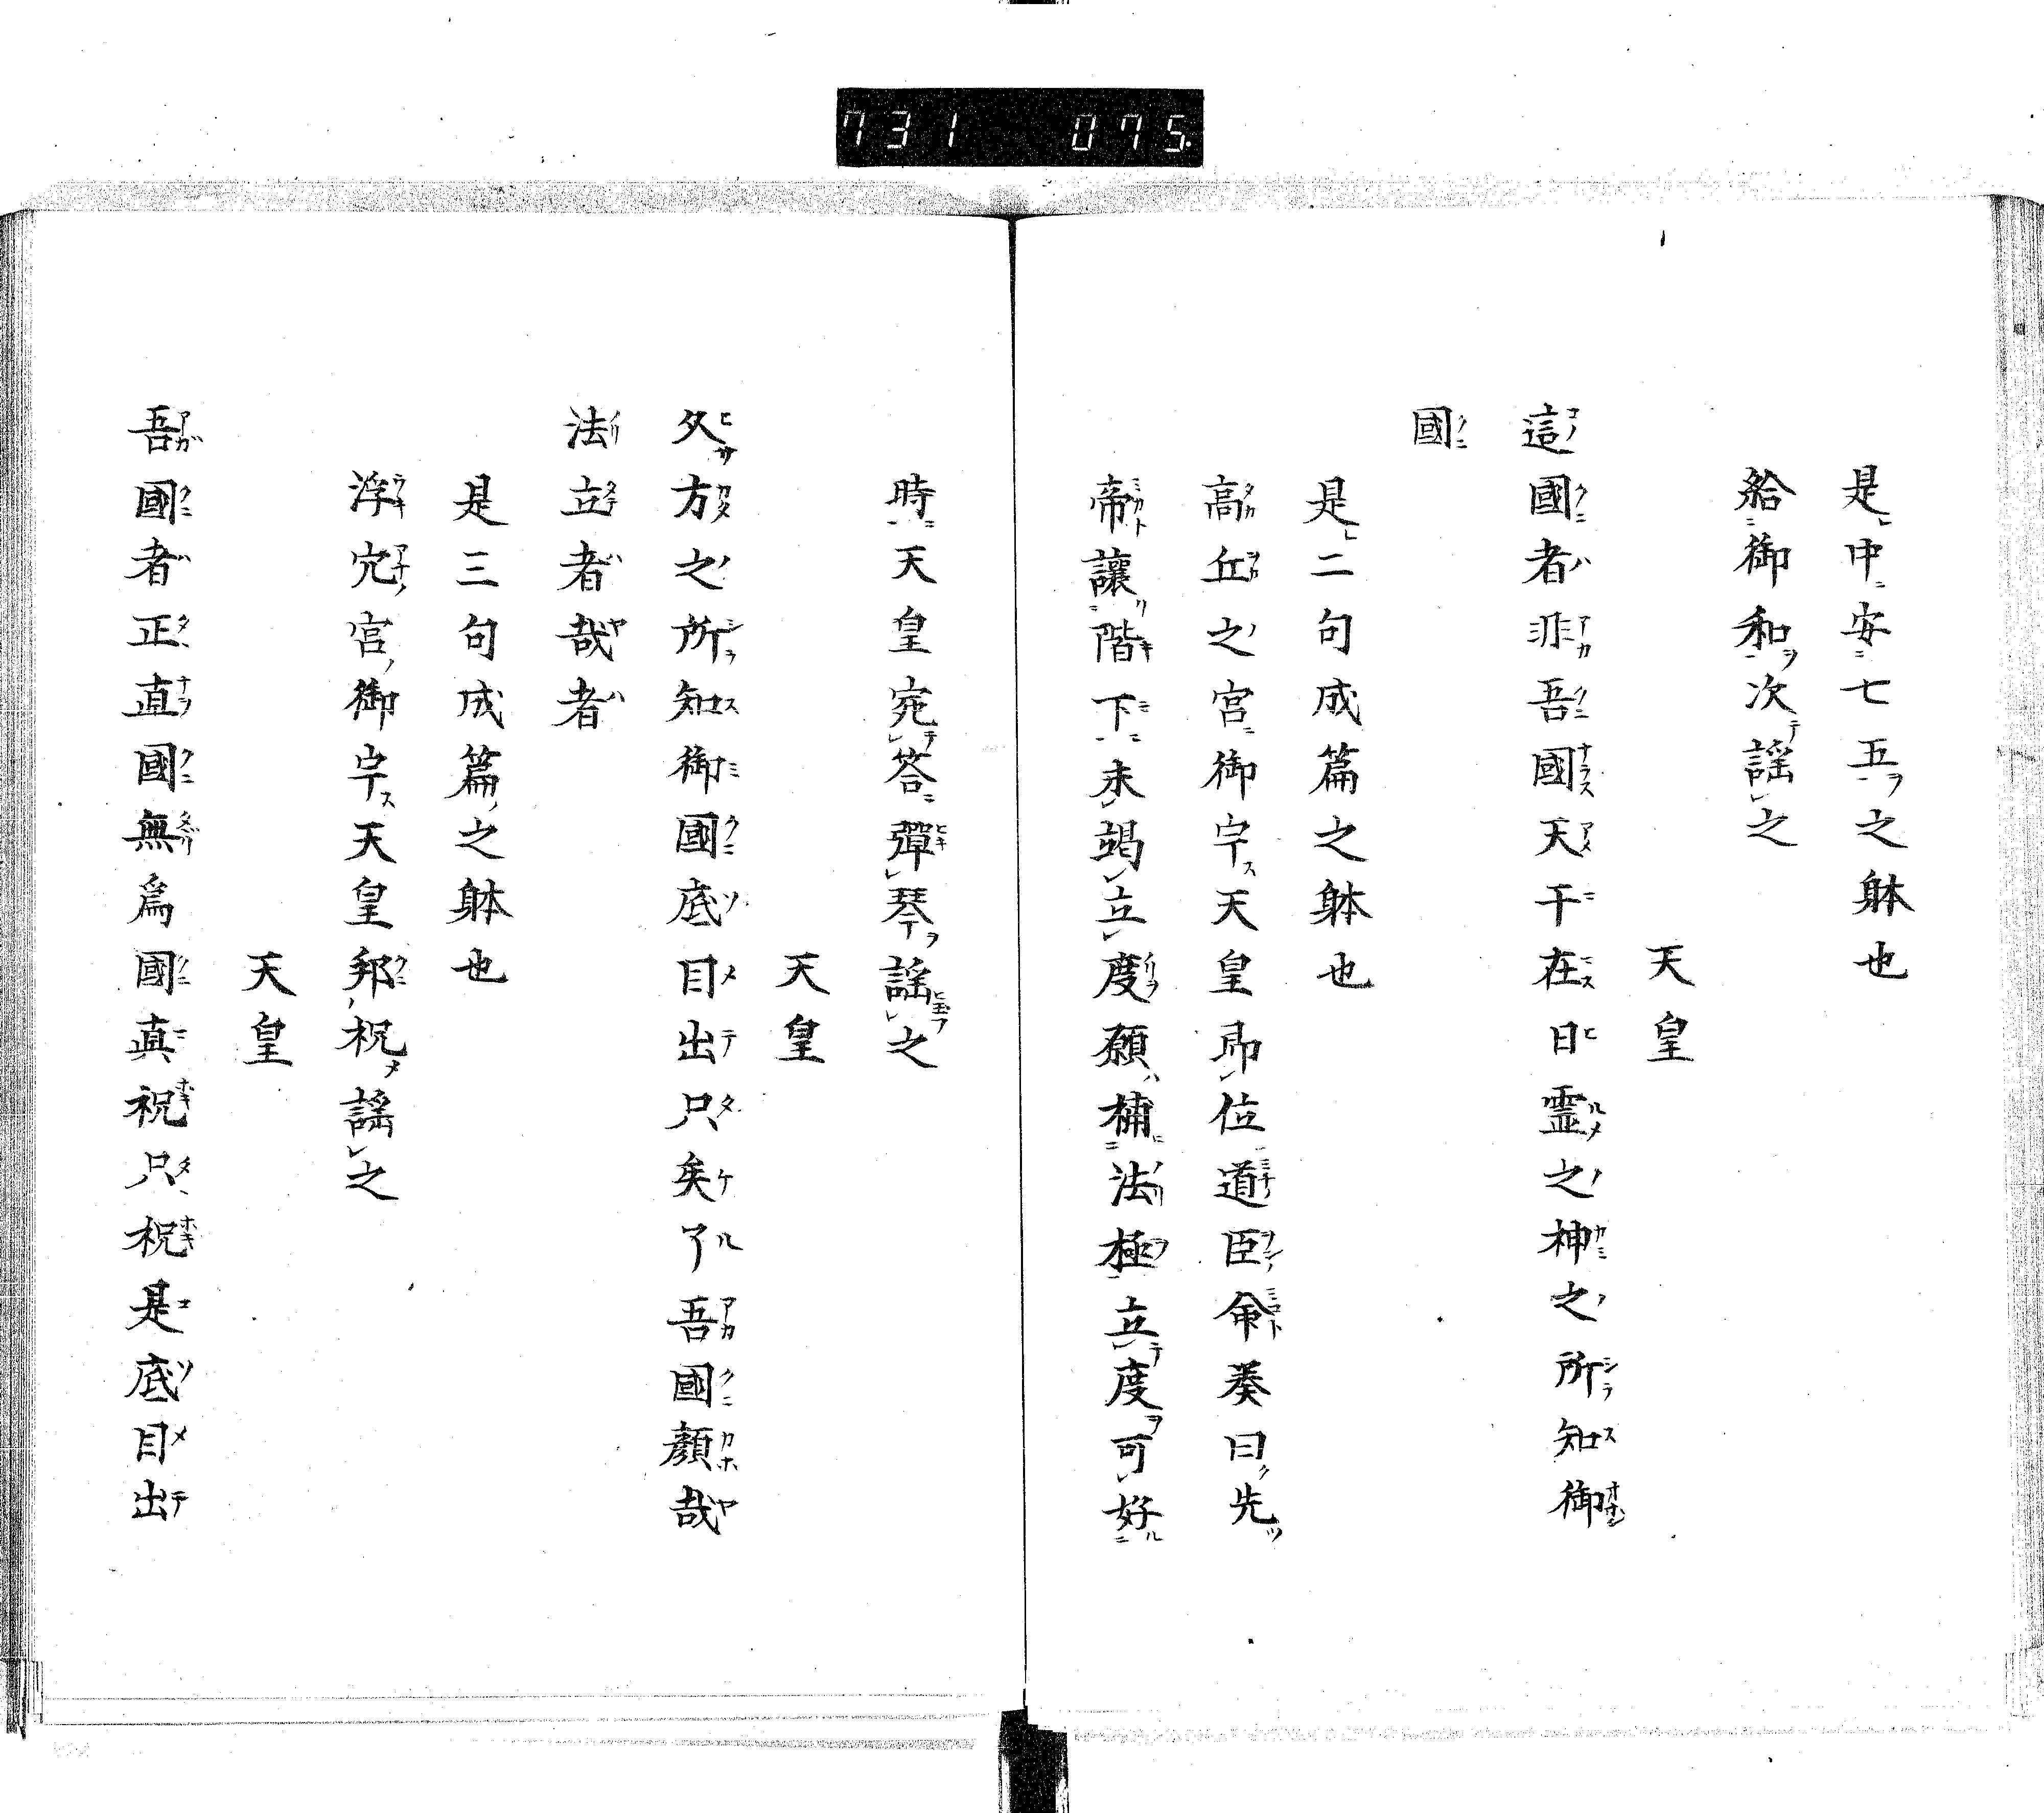 731 075.
是中安七五之躰也
給御和次謡之
天皇
這國者非吾國天干在日霊之神之所知御
國
是二句成篇之躰也
高丘之宮御宇天皇即位道臣命奏曰先
帝讓階下未竭立度願補法極立度可好
時天皇宛答彈琴謡之
天皇
久方之所知御國底目出只矣了吾國顏哉
法立者哉者
是三句成篇之躰也
浮穴宮御宇天皇邦祝謡之
天皇
吾國者正直國無為國真祝只祝是底目出